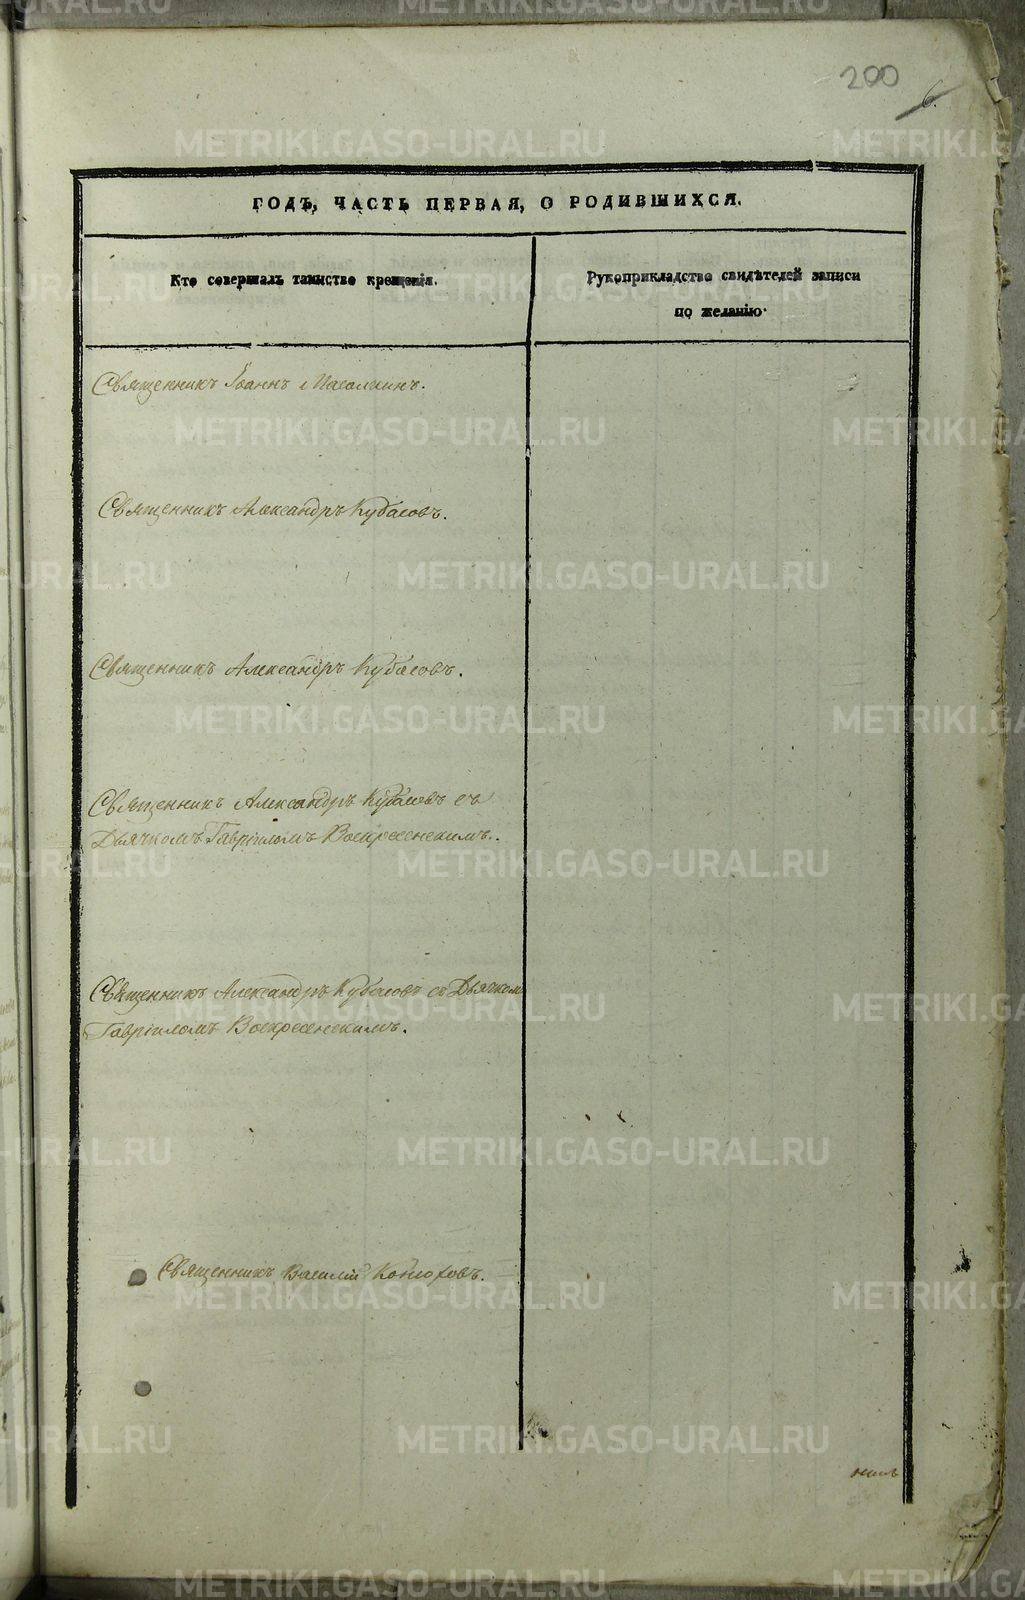 200
6.
ГОДЪ, ЧАСТЬ ПЕРВАЯ, О РОДИВШИХСЯ.
Кто совершалъ таинство крещенія.
Рукоприкладство свидѣтелей записи
по желанію.
Священникъ Іоаннъ
Священникъ Александръ Кубасовъ.
Священникъ Александръ Кубасовъ.
Священникъ Александръ Кубасовъ съ
Дьячкомъ Гавріиломъ Воскресенскимъ.
Священникъ Александръ Кубасовъ съ Дьячкомъ
Гавріиломъ Воскресенскимъ.
Священникъ Василій
METRIKI.GASO-URAL.RU